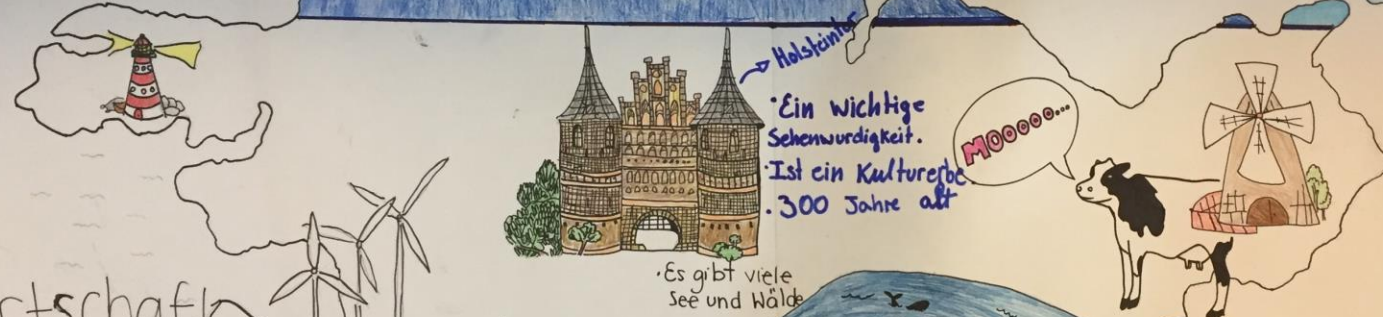 Holsteintor
• Ein wichtige
Sehenwurdigkeit.
• Ist ein Kulturerbe.
• 300 Jahre alt
MOOOOO...
• Es gibt viele
See und Wälde
rtschaft